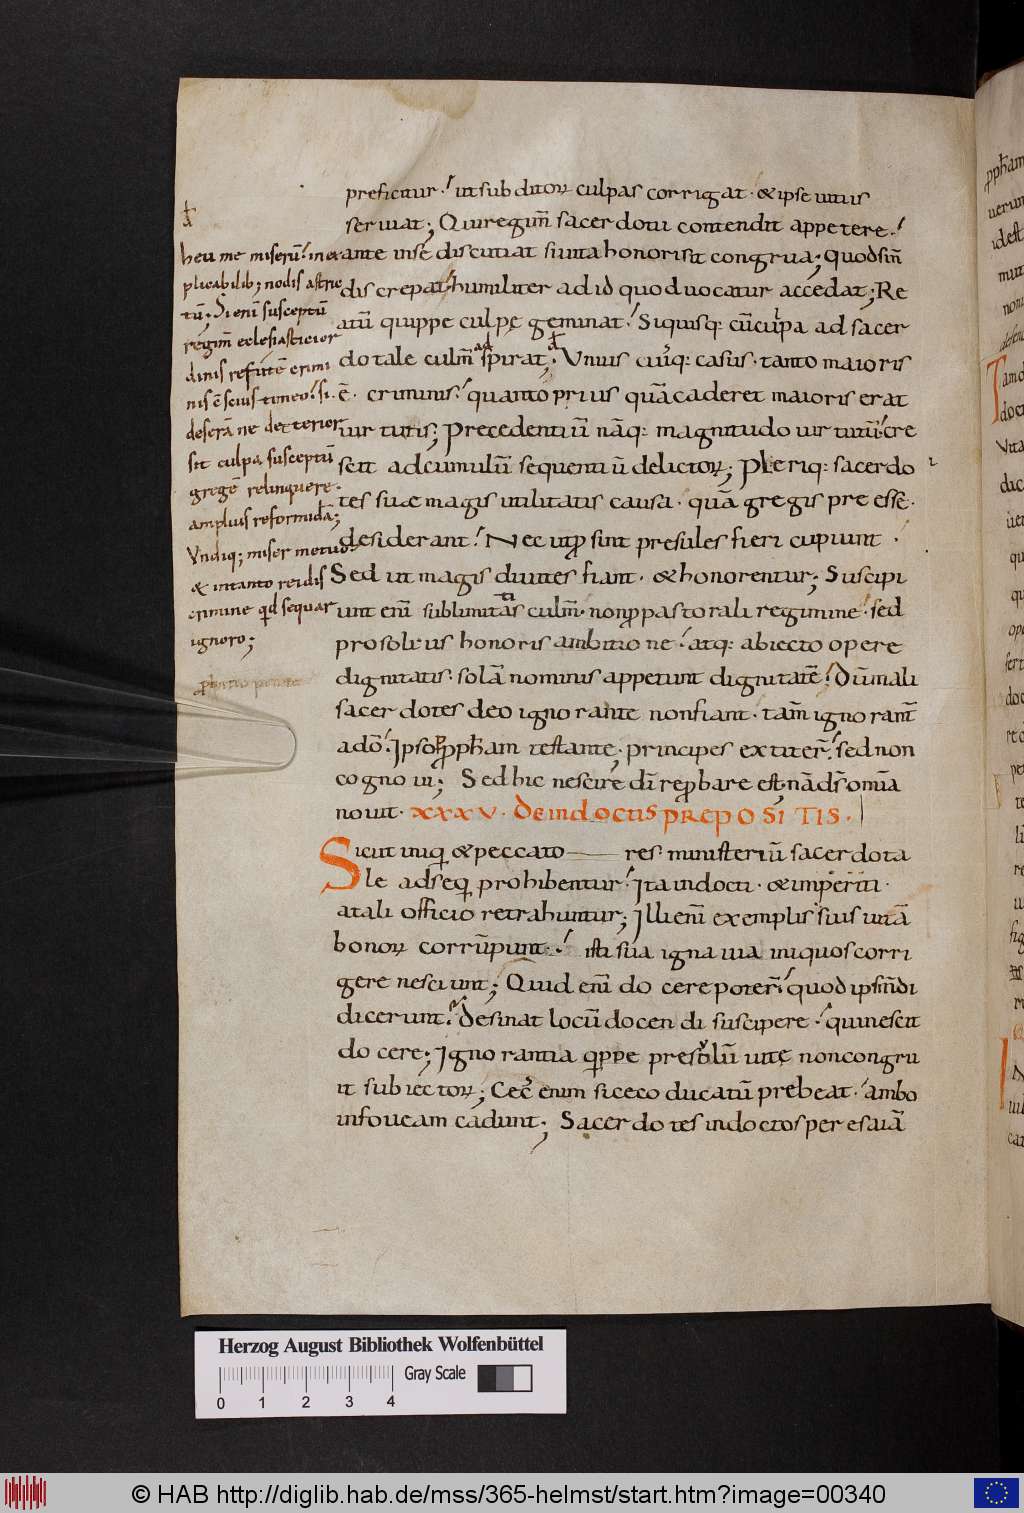 preficitur · ut subditoꝝ culpas corrigat · & ipse uitiis
seruiat ; Qui regim̄ sacerdotii contendit appetere ·
ante in sē discutiat si uita honori sit congrua ; Quod si n̄
discrepat · humiliter ad id quod uocatur accedat ; Re
atū quippe culpę geminat · Siquisq: cū culpa ad sacer
dotale culm̄ aspirat ; Vnius cuiq: casus · tanto maioris
ē · criminis · quanto prius quā caderet maioris erat
uir tutis ; Precedentiū nāq: magnitudo uirtutū · cre
scit ad cumulū sequentiū delictoꝝ ; Pleriq: sacerdo
tes suæ magis utilitatis causa · quā gregis pre essē ·
desiderant · Nec ut ꝓsint presules fieri cupiunt ·
Sed ut magis diuites fiant · & honorentur ; Suscipi
unt eni sublimitatis culm̄ · non ꝓ pastorali regimine · sed
pro solius honoris ambitione · atq: abiecto opere
dignitatis · solā nominis appetunt dignitatē · Dū mali
sacerdotes deo ignorante non fiant · tam̄ ignorant̄
a dō · Ipso ꝓ ppħam testante ; principes extiter̄ · sed non
cognoui ; Sed hic nescire dī reprobare est ; nā ds̄ omīa
nouit · XXXV · De indoctis prepositis ·
Sicut iniqi & peccato res ministeriū sacerdota
le adseqi prohibentur · Ita indocti · & imperiti ·
a tali officio retrahuntur ; Illi enī exemplis suis uitā
bonoꝝ corrūpunt · isti sua ignauia iniquos corri
gere nesciunt ; Quid enī docere poter̄ · quod ipsi n̄ di
dicerunt · Desinat locū docendi suscipere · qui nescit
docere ; Ignorantia qippe presulū uitę non congru
it subiectoꝝ ; Cęc̄ enim si ceco ducatū prebeat · ambo
in foueam cadunt ; Sacerdotes indoctos per esaiā
heu me miserū · inex
plicabilib; nodis astric
tū · Si enī susceptū
regim̄ eclesiasticior
dinis refutē crimi
nis ē scius timeo · si ·
deserā ne deterior
sit culpa susceptū
gregē relinquere ·
amplius reformidā ;
Vndiq; miser metuo ·
& in tanto rei dis
crimine qid sequar
ignoro ;
Herzog August Bibliothek Wolfenbüttel
0 1 2 3 4 Gray Scale
© HAB http://diglib.hab.de/mss/365-helmst/start.htm?image=00340